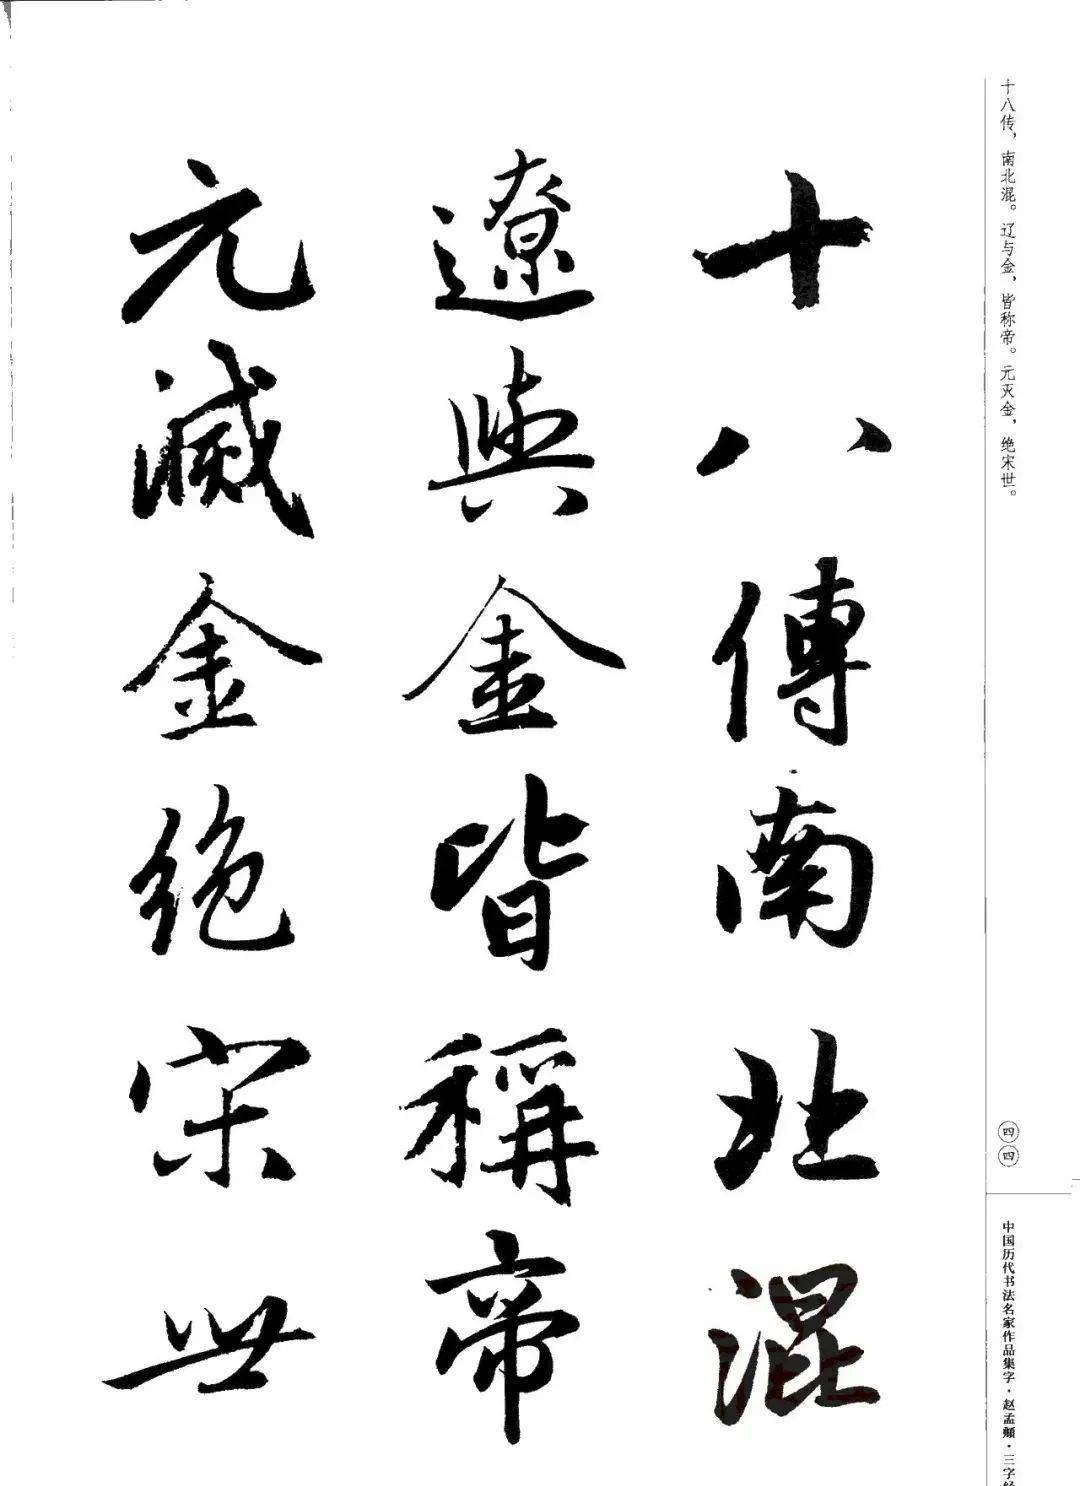 十八传，南北混。辽与金，皆称帝。元灭金，绝宋世。
十八傳南北混
遼與金皆稱帝
元滅金絕宋世
四四
中国历代书法名家作品集字·赵孟頫·三字经